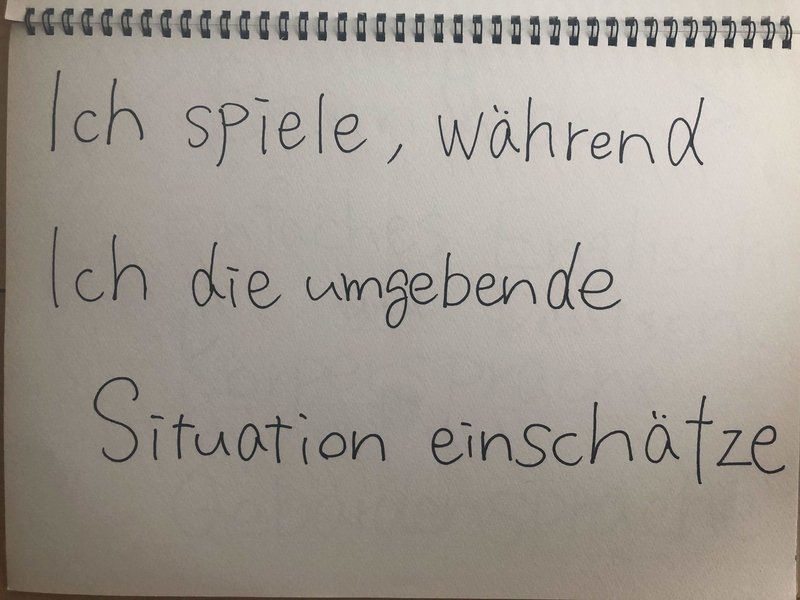 Ich spiele, während
Ich die umgebende
Situation einschätze